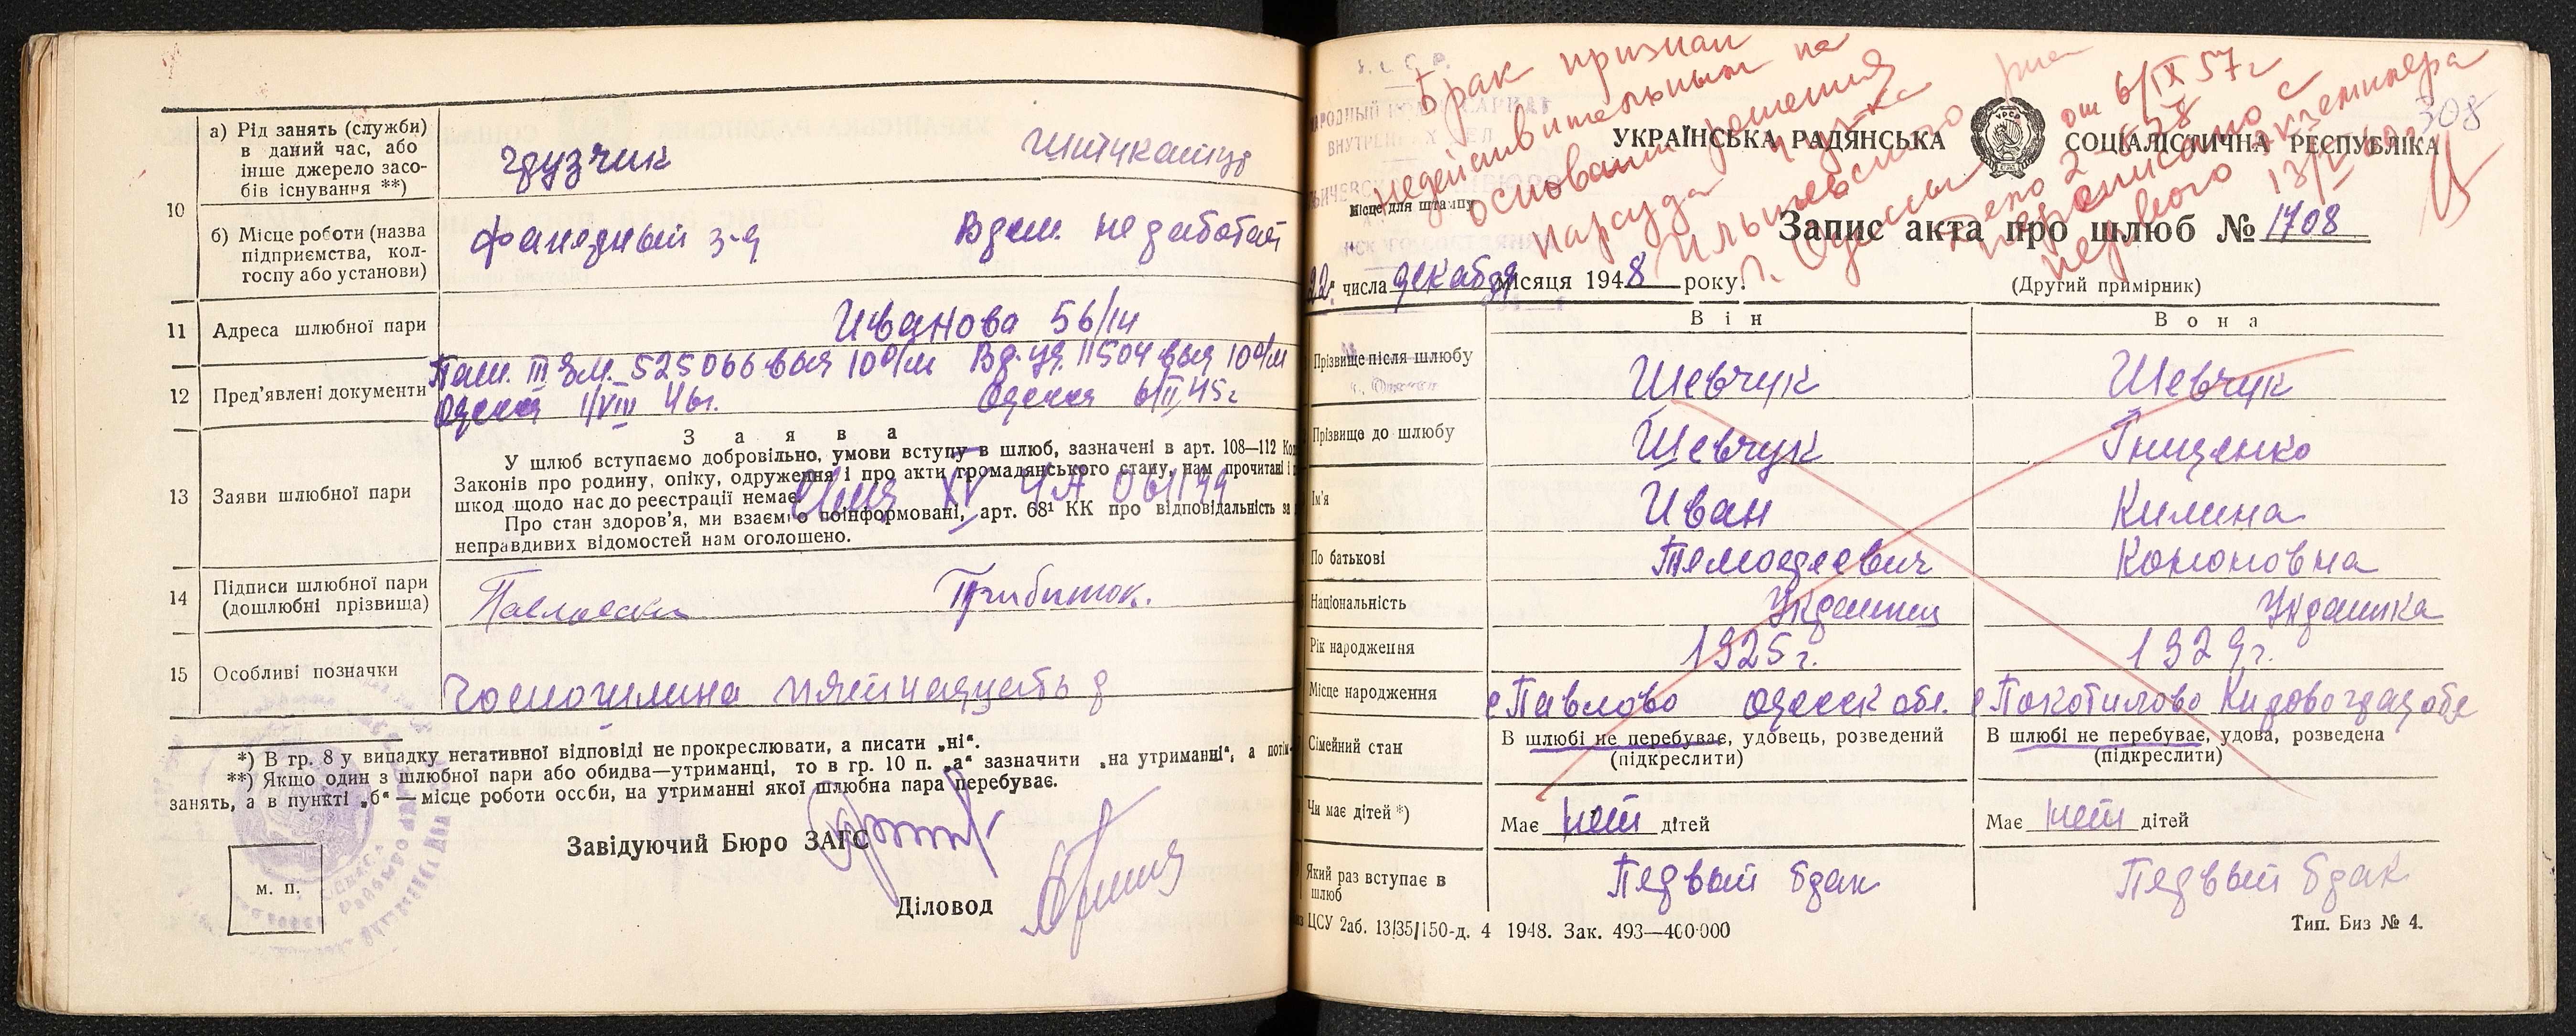 10
а) Рід занять (служби)
в даний час, або
інше джерело засо-
бів існування **)
грузчик
б) Місце роботи (назва
підприємства, кол-
госпу або установи)
фанерный з-д
Врем. не работает
11
Адреса шлюбної пари
Иванова 56/14
12
Пред'явлені документи
Пасп. III Зм. 525066 выд 10 о/м
Одесса 1/VIII 46г.
Вр. уд. 11504 выд 10 о/м
Одесса 6/II 45г
13
Заяви шлюбної пари
Заява
У шлюб вступаємо добровільно, умови вступу в шлюб, зазначені в арт. 108—112 Ко
Законів про родину, опіку, одруження і про акти громадянського стану, нам прочитані і
шкод щодо нас до реєстрації немає.
Про стан здоров'я, ми взаємно поінформовані, арт. 68¹ КК про відповідальність за
неправдивих відомостей нам оголошено.
XV ЧА 061199
14
Підписи шлюбної пари
(дошлюбні прізвища)
15
Особливі позначки
Госпошлина пятнадцать р
*) В гр. 8 у випадку негативної відповіді не прокреслювати, а писати „ні“.
**) Якщо один з шлюбної пари або обидва—утриманці, то в гр. 10 п. „а“ зазначити „на утриманні“, а потім
занять, а в пункті „б“—місце роботи особи, на утриманні якої шлюбна пара перебуває.
Завідуючий Бюро ЗАГС
Діловод
м. п.
Брак признан
недействительным на
основании решения
Нарсуда 4 уч-ка
Ильичевского р-на
г. Одессы от 6/IX 57г
Дело 2-
первого экземпляра
308
УКРАЇНСЬКА РАДЯНСЬКА
СОЦІАЛІСТИЧНА РЕСПУБЛІКА
УРСР
НАРОДНЫЙ КОМИССАРИАТ
ВНУТРЕННИХ ДЕЛ
Місце для штампу
Запис акта про шлюб № 1708
22 числа декабря місяця 1948 року.
(Другий примірник)
Він
Вона
Прізвище після шлюбу
Шевчук
Шевчук
Прізвище до шлюбу
Шевчук
Гнищенко
Ім'я
Иван
Килина
По батькові
Тимофеевич
Кононовна
Національність
Украинец
Украинка
Рік народження
1925 г.
1929 г.
Місце народження
с Павлово Одесск обл.
с Покотилово Кировоград обл
Сімейний стан
В шлюбі не перебуває, удовець, розведений
(підкреслити)
В шлюбі не перебуває, удова, розведена
(підкреслити)
Чи має дітей *)
Має нет дітей
Має нет дітей
Який раз вступає в
шлюб
Первый брак
Первый брак
ЦСУ 2аб. 13/35/150-д. 4 1948. Зак. 493—400·000
Тип. Биз № 4.